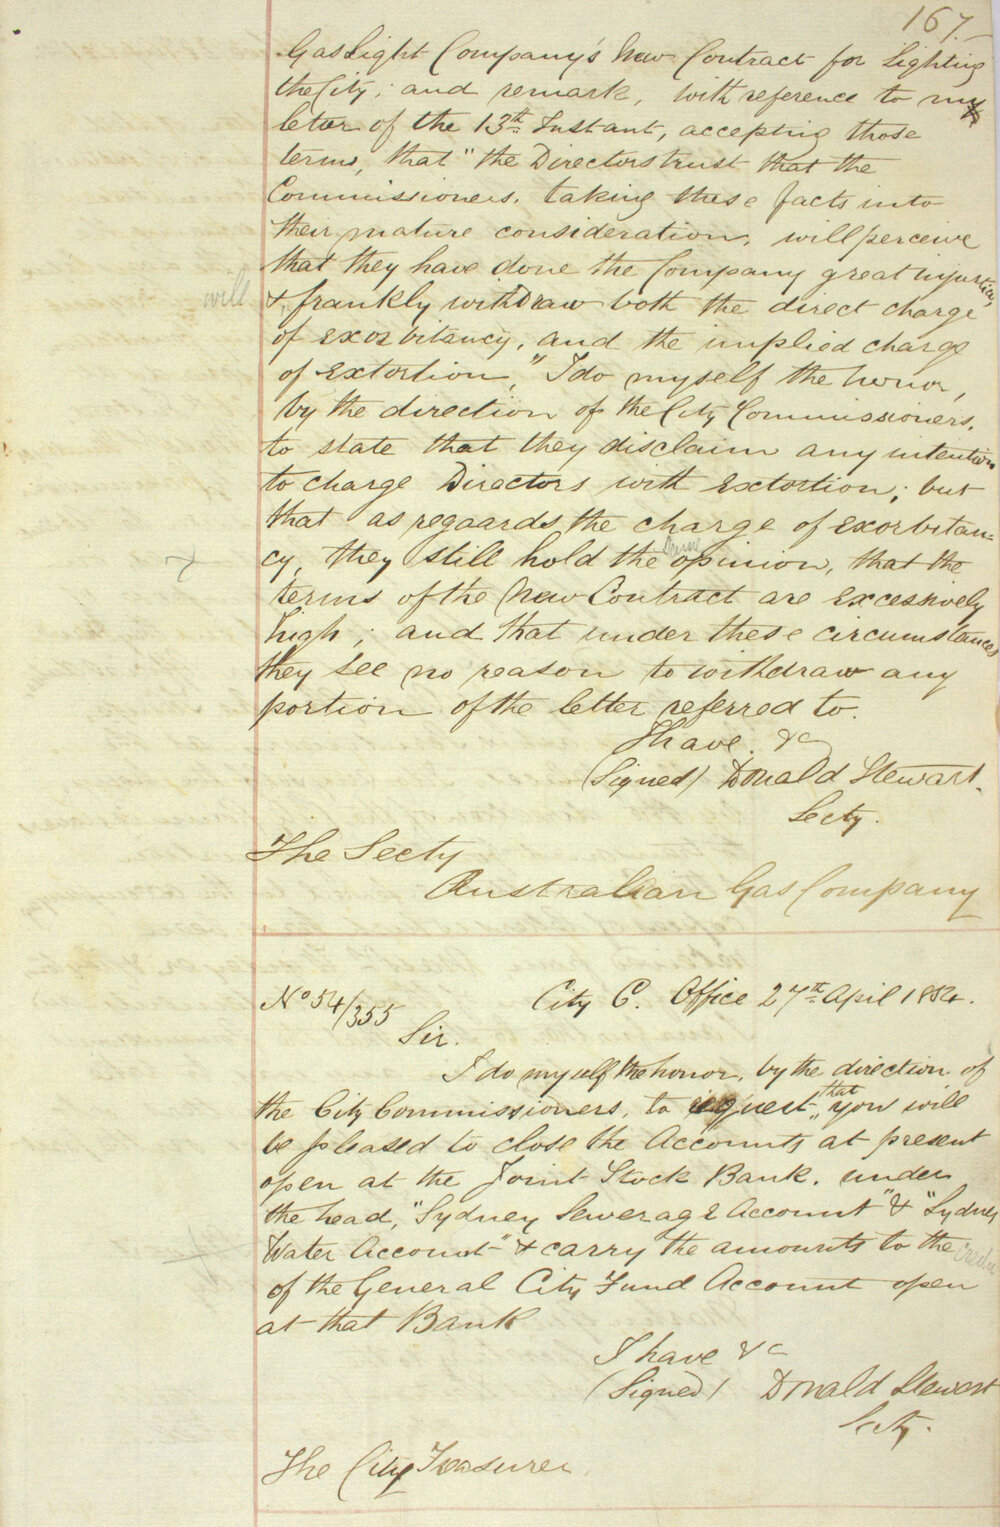 167.
Gas Light Company's New Contract for Lighting
the City; and remark, with reference to my
letter of the 13th Instant, accepting those
terms, that "the Directors trust that the
Commissioners, taking these facts into
their mature consideration, will perceive
that they have done the Company great injustice,
will
& frankly withdraw both the direct charge
of exorbitancy, and the implied charge
of Extortion," I do myself the honor,
by the direction of the City Commissioners,
to state that they disclaim any intention
to charge Directors with Extortion; but
that as regaards the charge of Exorbitan=
cy, they still hold the opinion, that the
terms of the New Contract are Excessively
high; and that under these circumstances
they see no reason to withdraw any
portion of the letter referred to.
I have &c
(Signed) Donald Stewart.
Secty.
The Secty
Australian Gas Company
No 54/355
City C. Office 27th April 1854.
Sir.
I do myself the honor, by the direction of
the City Commissioners, to request that you will
be pleased to close the Accounts at present
open at the Joint Stock Bank, under
the head, "Sydney Sewerage Account" & "Sydney
Water Account" & carry the amounts to the Credit
of the General City Fund Account open
at that Bank
I have &c
(Signed) Donald Stewart
Secty.
The City Treasurer.